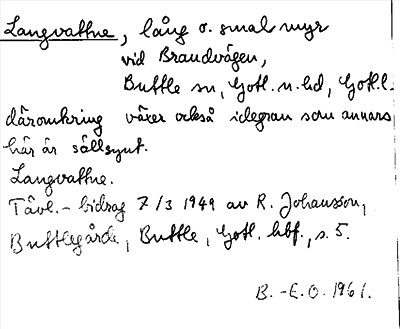 Langvattne, lång o. smal myr
vid Brandvägen,
Buttle sn, Gotl. n. hd, Gotl. l.
däromkring växer också idegran som annars
här är sällsynt.
Langvattne.
Tävl. - bidrag 7/3 1949 av R. Johansson,
Buttlegårda, Buttle, Gotl. hbf., s. 5.
B. -E. O. 1961.